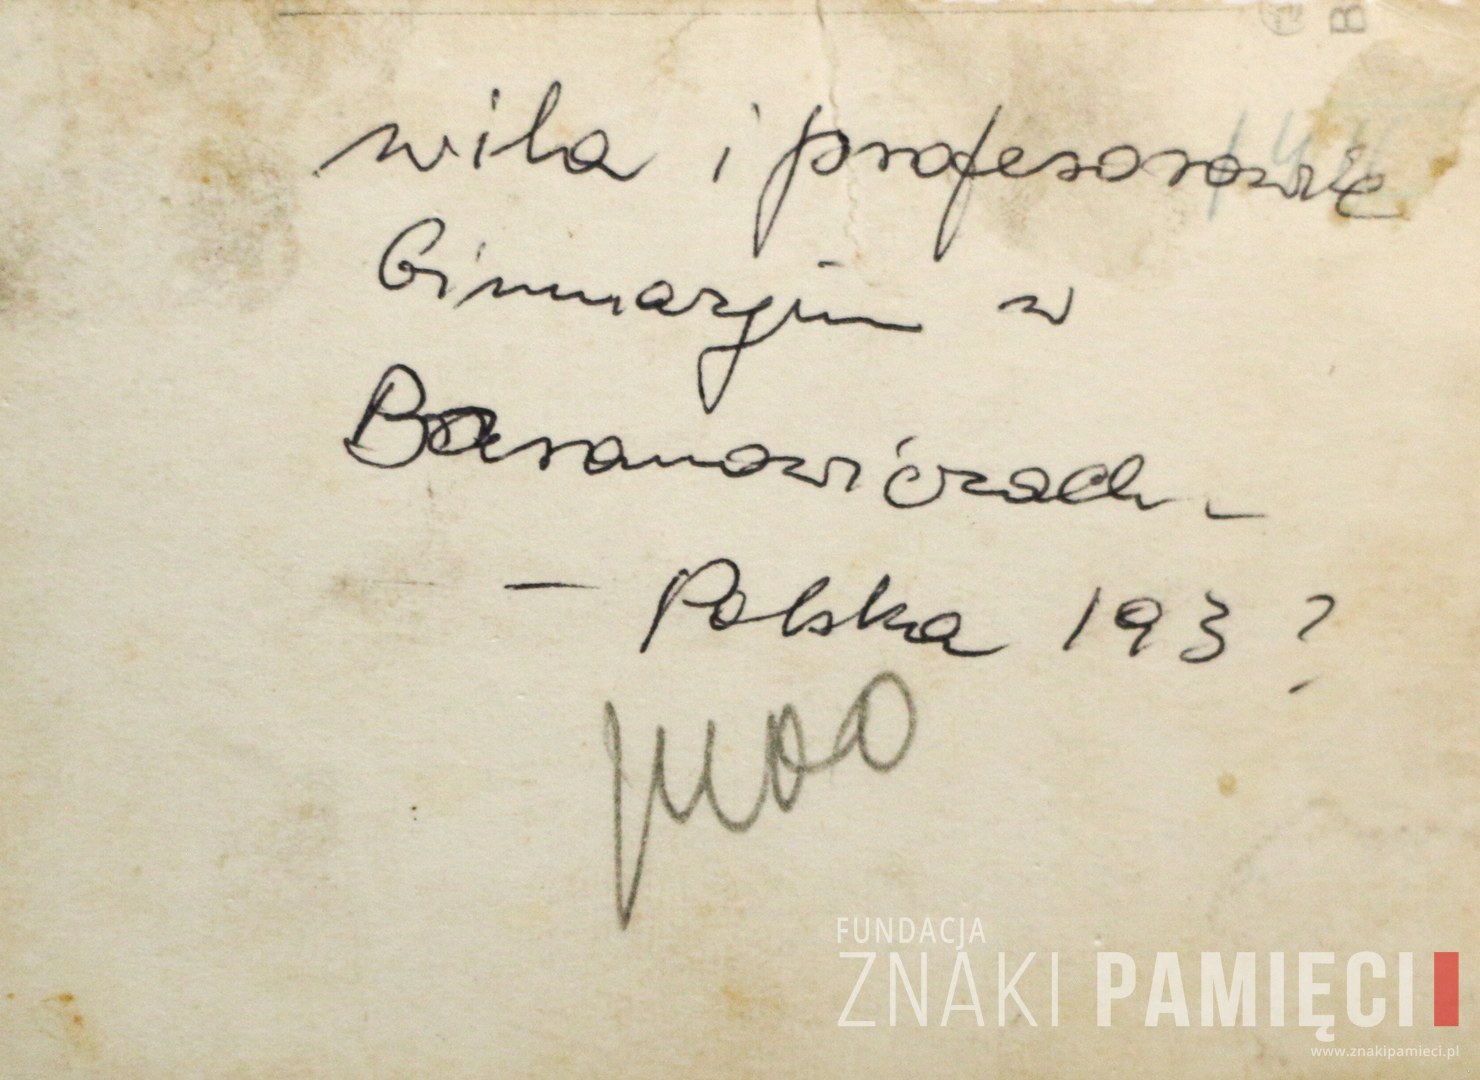 B
wila i profesorowie
Gimnazjum w
Baranowiczach -
- Polska 193?
FUNDACJA
ZNAKI PAMIĘCI
www.znakipamieci.pl